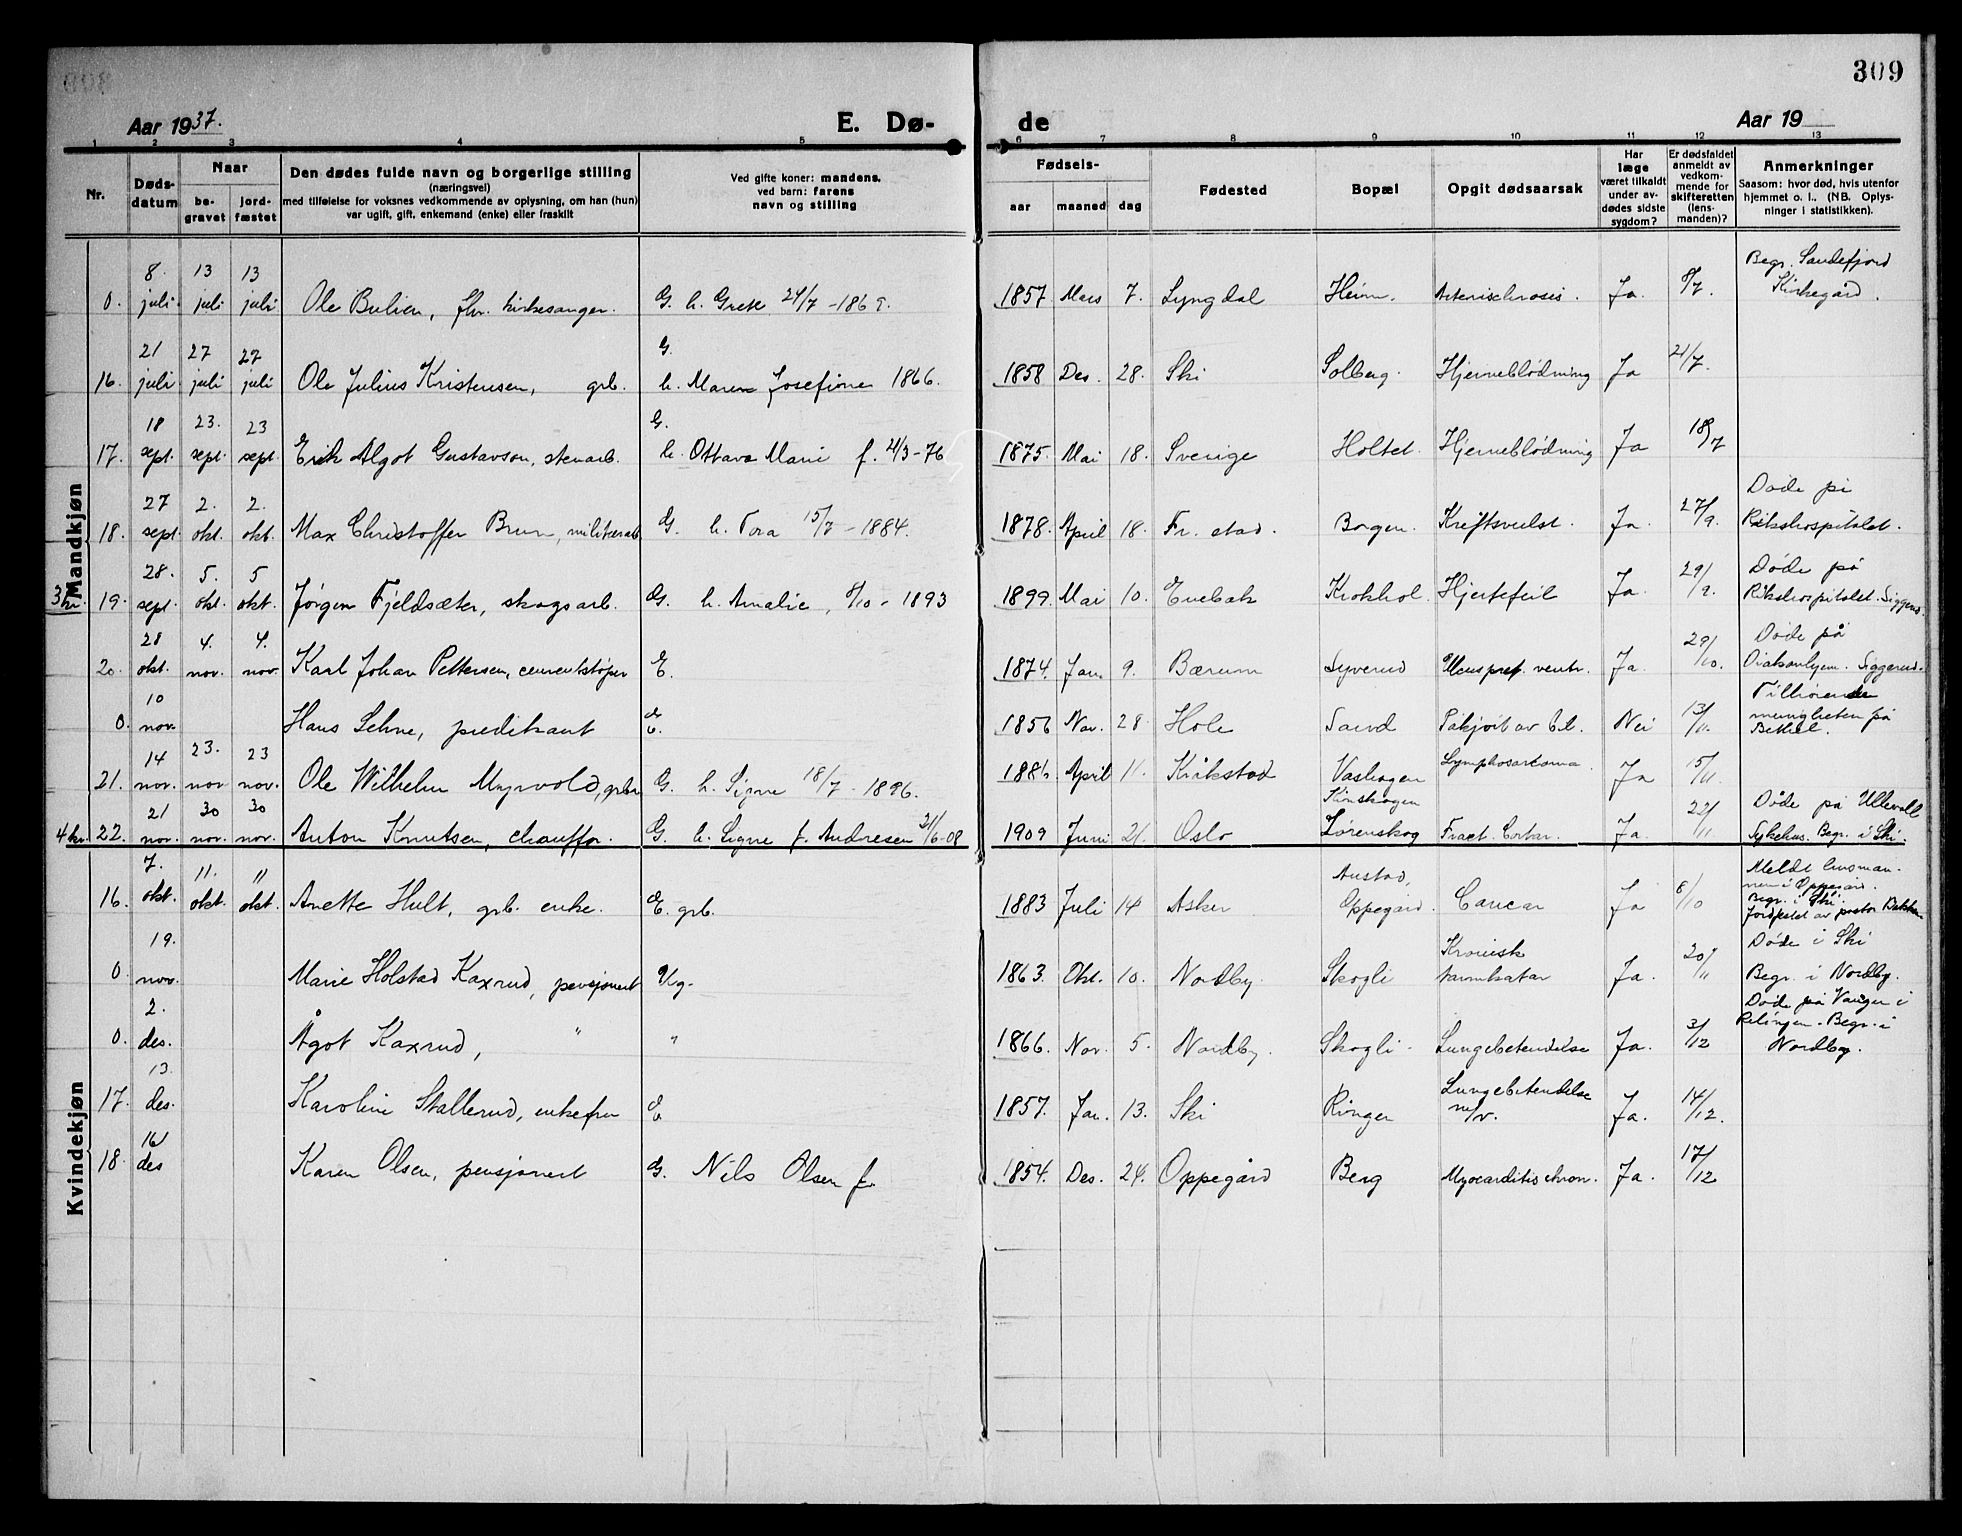 309
Aar 1937.
E. Dø-
de
Aar 19
1 2 3 4 5 6 7 8 9 10 11 12 13
Nr.
Døds-
datum
Naar
be-
gravet
jord-
fæstet
Den dødes fulde navn og borgerlige stilling
(næringsvei)
med tilføielse for voksnes vedkommende av oplysning, om han (hun)
var ugift, gift, enkemand (enke) eller fraskilt
Ved gifte koner: mandens,
ved barn: farens
navn og stilling
Fødsels-
aar maaned dag
Fødested
Bopæl
Opgit dødsaarsak
Har
læge
været tilkaldt
under av-
dødes sidste
sygdom?
Er dødsfaldet
anmeldt av
vedkom-
mende for
skifteretten
(lens-
manden)?
Anmerkninger
Saasom: hvor død, hvis utenfor
hjemmet o. l.. (NB. Oplys-
ninger i statistikken).
Mandkjøn
8. 13 13 Begr. Sandefjord
0. juli juli juli Ole Bulien, fhv. kirkesanger. G. h. Grete 24/7 - 1869. 1857 Mars 7. Lyngdal Heim. Ja. 8/7. Kirkegård.
21 27 27 G.
16. juli juli juli Ole Julius Kristensen, grb. h. Maren Josefine 1866. 1858 Des. 28. Ski Solberg. Hjerneblödning Ja 21/7.
18 23. 23 G.
17. sept. sept. sept. Erik Algot Gustavson, stenarb. h. Ottava Marie f. 2/3-76 1875. Mai 18. Sverige Holtet. Hjerneblödning Ja 18/7
27 2. 2. Døde på
18. sept. okt. okt. Max Christoffer Brun, militærarb. G. h. Tora 15/7 - 1884. 1878. April 18. Fr. stad. Borgen. Kreftsvulst. Ja. 27/9. Rikshospitalet.
28. 5. 5 Døde på
3 kr. 19. sept. okt. okt. Jørgen Fjeldsæter, skogsarb. G. h. Amalie, 8/10 - 1893 1899. Mai 10. Enebak Krokhol. Hjertefeil Ja. 29/9. Rikshospitalet. Siggerud.
28 4. 4. Døde på
20. okt. nov. nov. Karl Johan Pettersen, cementstøper E. 1874. Jan. 9. Bærum Syverud Ulcus pref. ventr. Ja. 29/10. Diakonhjem. Siggerud.
10 Tilhørende
0. nov. Hans Sehne, predikant E. 1856 Nov. 28. Hole Sand Påkjørt av bil. Nei 13/11. menigheten på
Betel.
14 23. 23
21. nov. nov nov. Ole Wilhelm Myrvold, grbr. G. h. Signe 18/7 - 1896. April 11. Kråkstad Vashagen Lymphosarkoma Ja 15/11.
21 30 30 Døde på Ullevåll
4 kr. 22. nov. nov. nov. Anton Knutsen, chauffør. G. h. Signe f. Andresen 21/6-08 1909 Juni 21. Oslo Lørenskog Ja. 22/11 Sykehus. Begr. i Ski.
Kvindekjøn
7. 11. 11 Austad, Meldt lensman-
16. okt. okt. okt. Anette Hult, grb. enke. E. grb. 1883 Juli 14 Asker Oppegård. Cancar Ja 8/10 nen i Oppegård.
Begr. i Ski.
Jordfestet av pastor Bakken
19. Kronisk Døde i Ski
0. nov. Marie Holstad Kaxrud, pensjonert Ug. 1863. Okt. 10. Nordby. Skogli tarmkatar Ja. 20/11 Begr. i Nordby.
2. Døde på Vangen i
0. des. Ågot Kaxrud, " " 1866. Nov. 5. Nordby. Skogli Lungebetendelse Ja. 3/12 Relingen. Begr. i
Nordby.
13. Lungebetendelse
17. des. Karoline Skallerud, enkefru E 1857. Jan. 13. Ski Ringer m/v. Ja. 14/12.
16
18. des Karen Olsen, pensjonert G. Nils Olsen f. 1854. Des. 24. Oppegård Berg Myocarditis chron. Ja. 17/12